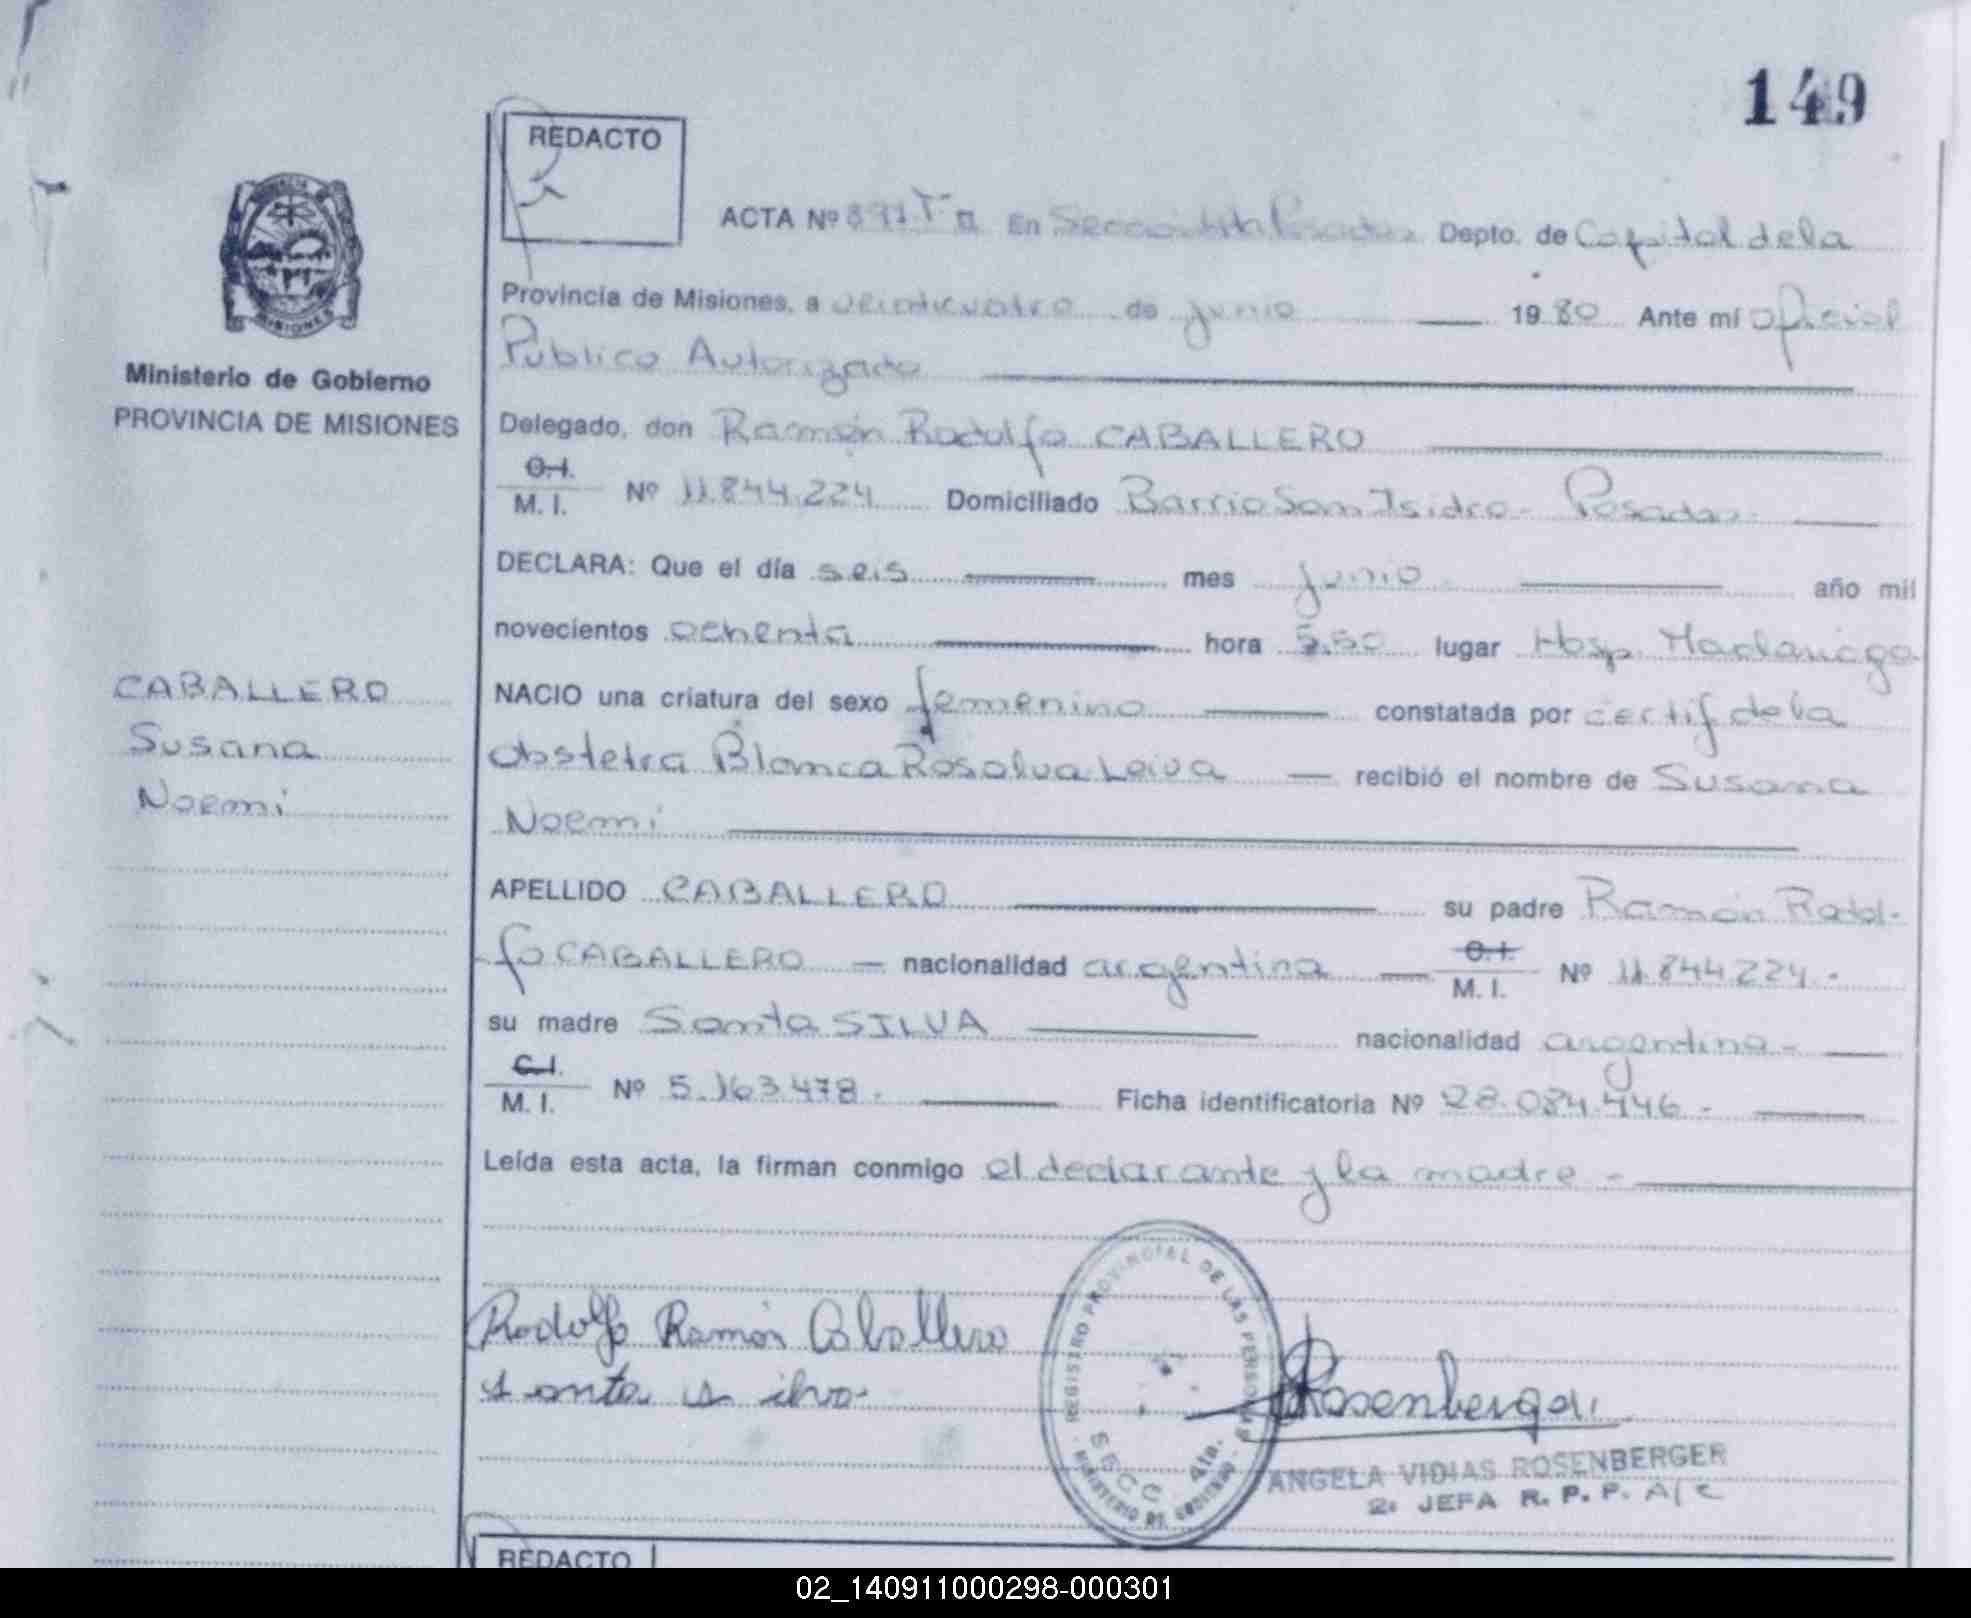 149
REDACTO
ACTA Nº 891 Tº II En Sección 4ta Posadas Depto. de Capital de la
Provincia de Misiones, a veinticuatro de junio 1980 Ante mí oficial
Publico Autorizado
Ministerio de Gobierno
PROVINCIA DE MISIONES
Delegado, don Ramón Rodolfo CABALLERO
C.I.
M. I. Nº 11.844.224 Domiciliado Barrio San Isidro - Posadas-
DECLARA: Que el día seis mes junio año mil
novecientos ochenta hora 5.50 lugar Hosp. Madariaga
CABALLERO
Susana
Noemi
NACIO una criatura del sexo femenino constatada por certif de la
obstetra Blanca Rosalva Leiva recibió el nombre de Susana
Noemi
APELLIDO CABALLERO su padre Ramón Rodol-
fo CABALLERO nacionalidad argentina C.I. M. I. Nº 11.844.224.-
su madre Santa SILVA nacionalidad argentina-
C.I.
M. I. Nº 5.163.478. Ficha identificatoria Nº 28.084.446-
Leída esta acta, la firman conmigo el declarante y la madre-
Rodolfo Ramón Caballero
santa silva
REGISTRO PROVINCIAL DE LAS PERSONAS
SECC 4ta.
MINISTERIO DE GOBIERNO
Rosenberger
ANGELA VIDIAS ROSENBERGER
2: JEFA R. P. P. A/C
REDACTO
02_140911000298-000301